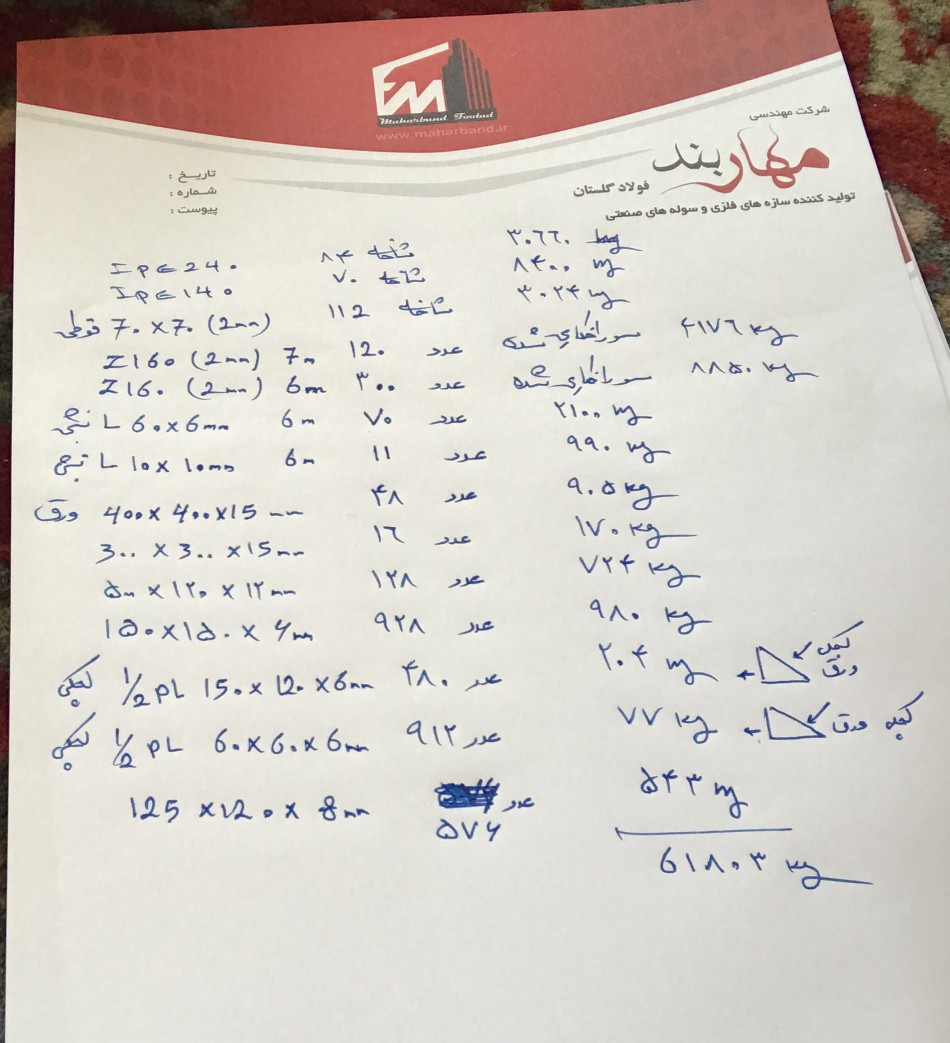 EM
Maharband Foolad
www.maharband.ir
شرکت مهندسی
مهاربند
فولاد گلستان
تولید کننده سازه های فلزی و سوله های صنعتی
تاریخ :
شماره :
پیوست :
IPE 24۰ ۸۴ شاخه ۳۰۶۶۰ kg
IPE 14۰ ۷۰ شاخه ۸۴۰۰ kg
قوطی 7۰×7۰ (2mm) 112 شاخه ۳۰۲۴ kg
Z16۰ (2mm) 7m 12۰ عدد سوراخکاری شده ۴۱۷۶ kg
Z16۰ (2mm) 6m ۳۰۰ عدد سوراخکاری شده ۸۸۵۰ kg
نبشی L 6۰×6mm 6m ۷۰ عدد ۲۱۰۰ kg
نبشی L 1۰×1۰mm 6m 11 عدد ۹۹۰ kg
ورق 4۰۰×4۰۰×15 mm ۴۸ عدد ۹۰۵ kg
3۰۰×3۰۰×15mm ۱۶ عدد ۱۷۰ kg
۱۲۰×۱۲mm ۱۲۸ عدد ۷۲۴ kg
۱۵۰×۱۵۰×6mm ۹۲۸ عدد ۹۸۰ kg
لچکی 1/2 PL 15۰×12۰×6mm ۴۸۰ عدد ۲۰۴ kg لچکی ورق
لچکی 1/2 PL 6۰×6۰×6mm ۹۱۲ عدد ۷۷ kg ورق
125×12۰×8mm عدد ۵۴۳ kg
۵۷۶
61۸۰۳ kg